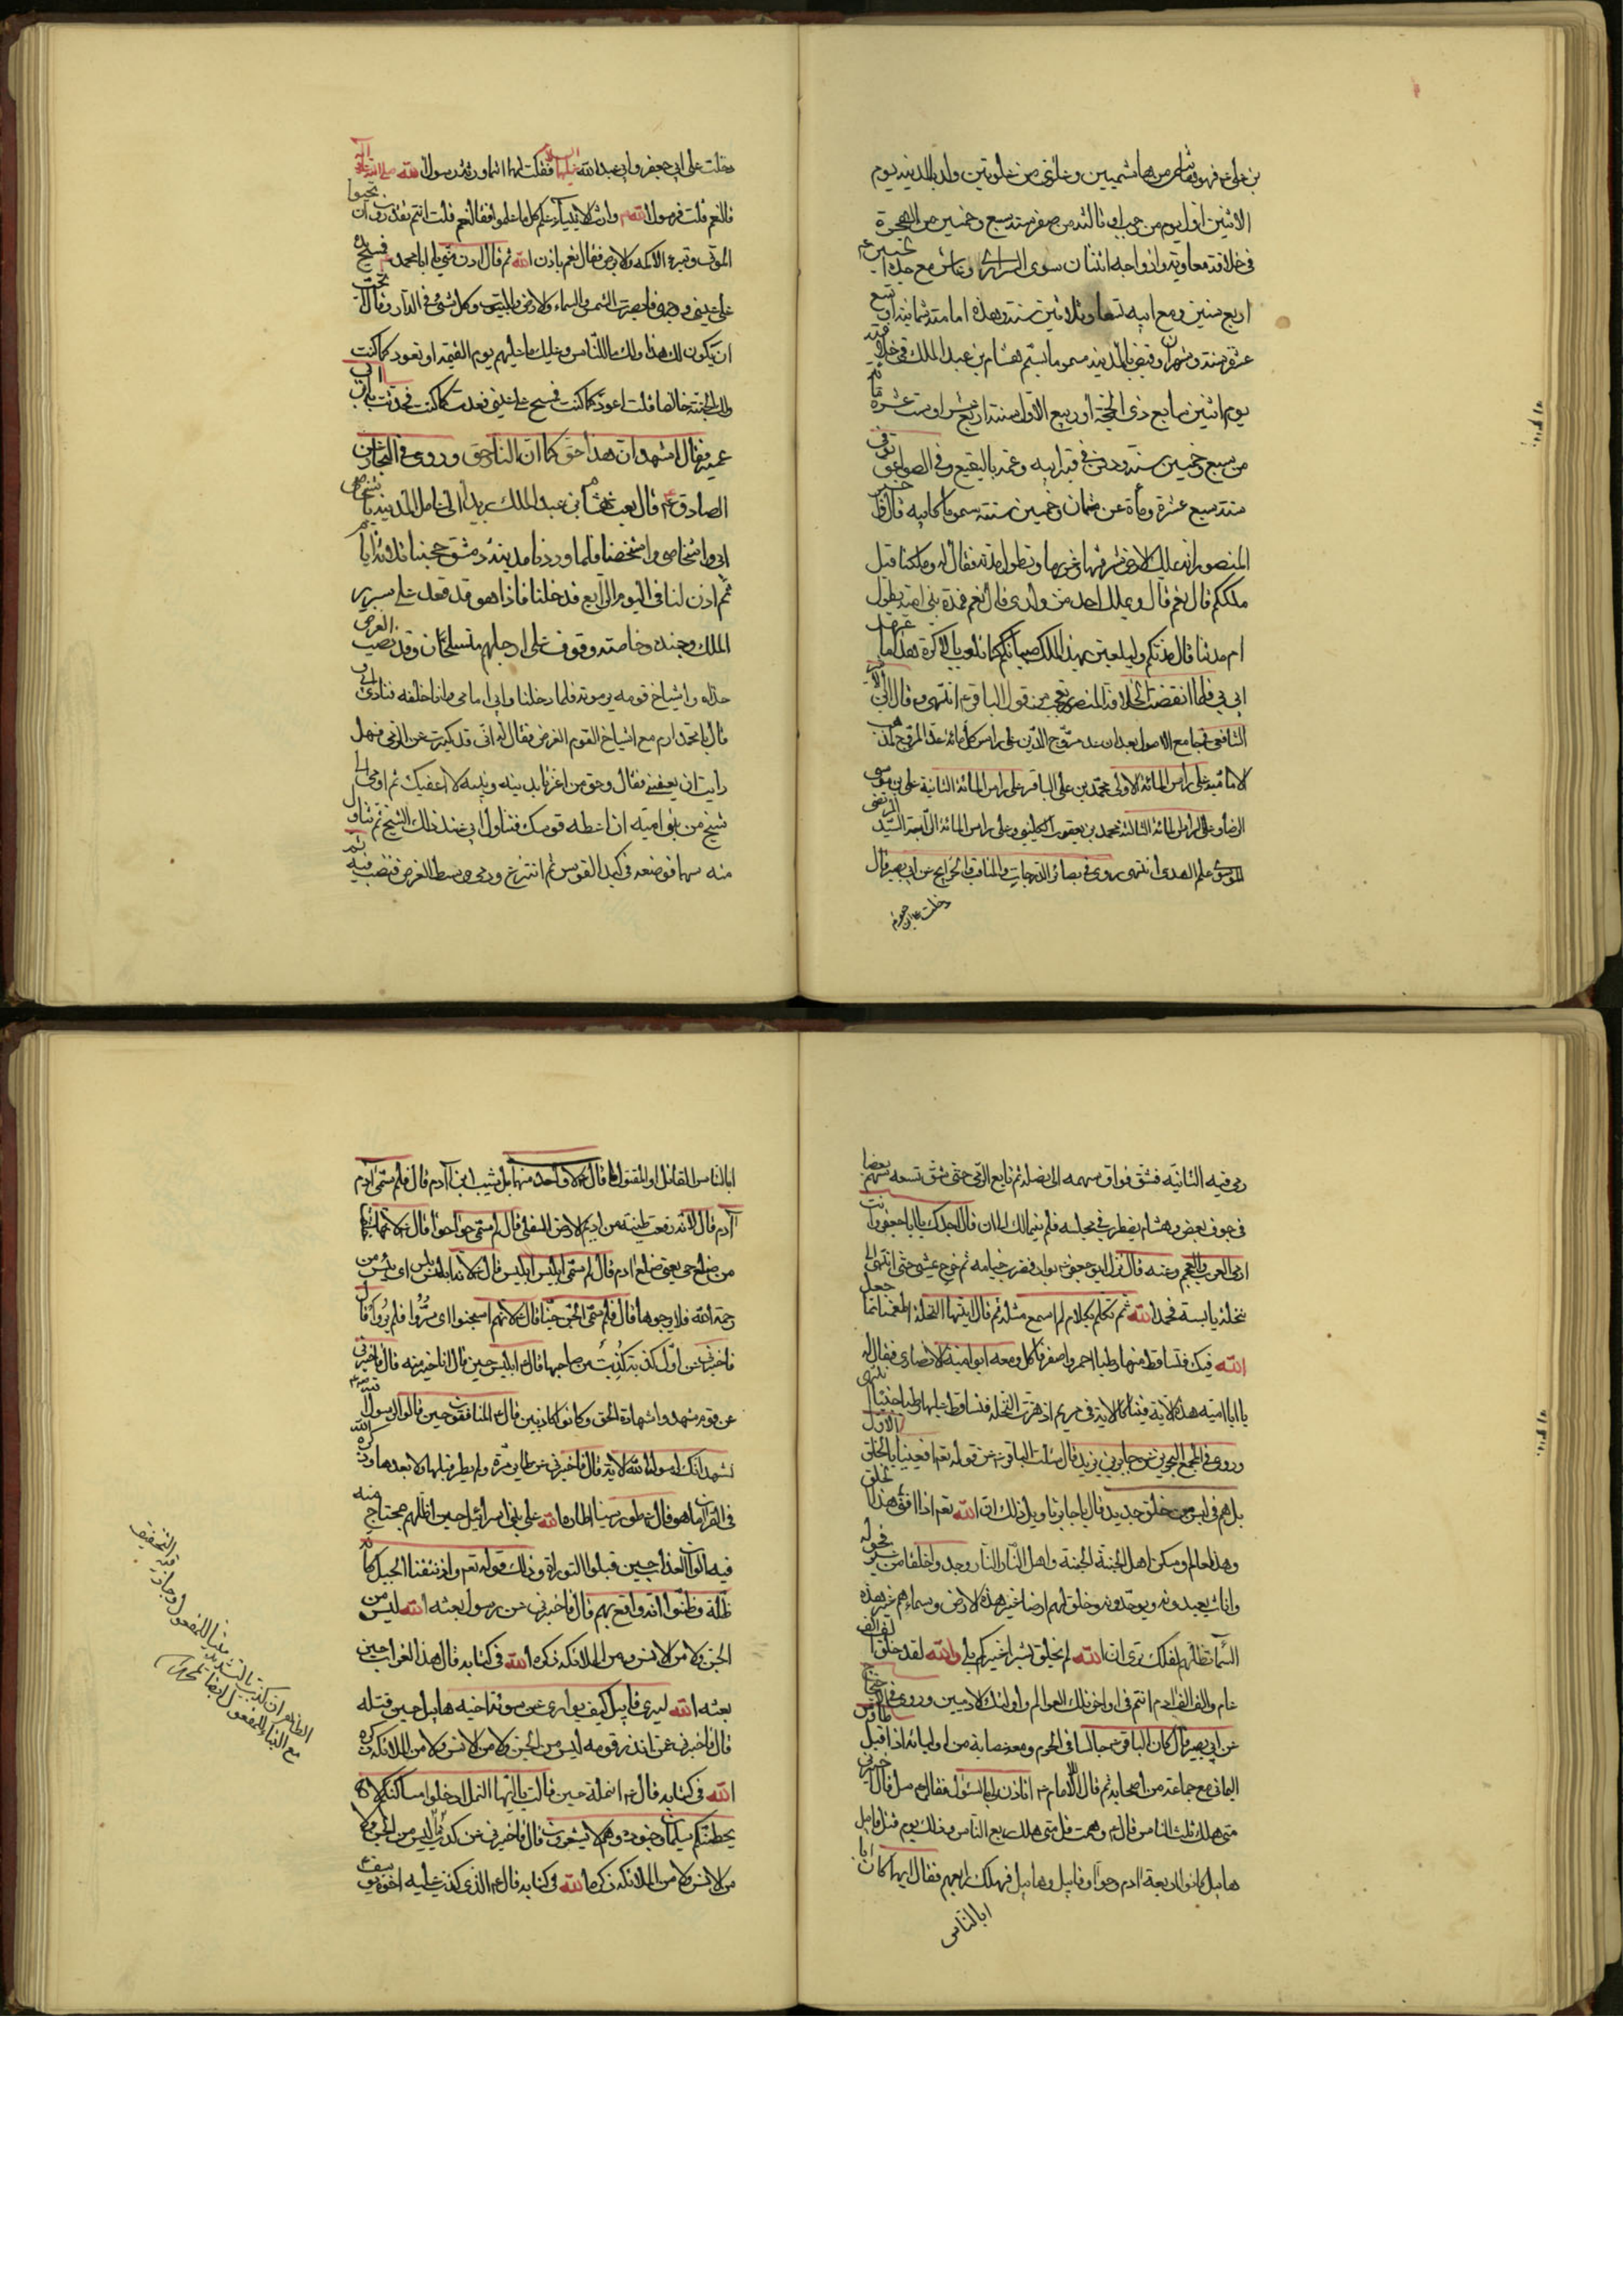 بن علی ع فهو هاشمی من هاشمیین و علوی من علویین ولد بالمدینه یوم
الاثنین اول یوم من رجب او ثالثه من صفر سنه سبع و خمسین من الهجرة
فی خلافة معاویه و ازواجه اثنتان سوی السراری و عاش مع جده الحسین ع
اربع سنین و مع ابیه تسعا و ثلاثین سنه و هذه امامته ثمانیة او تسع
عشرة سنه و شهران و قبض بالمدینه مسموما بسم هشام بن عبد الملک فی خلافته
یوم اثنین سابع ذی الحجة او ربیع الاول سنة اربع عشر او ست عشرة و مأة
من سبع و خمسین سنه و دفن فی قبر ابیه و عمه بالبقیع و فی الصواعق توفی
سنه سبع عشرة و مأة عن ثمان و خمسین سنه مسموما کابیه قال خبر
المنصور انه یملک الارض شرقها و غربها و تطول مدته فقال له و ملکنا قبل
ملککم قال نعم قال و یملک احد من ولدی قال نعم قال فمدة بنی امیه تطول
ام مدتنا قال مدتکم و لیلعبن بهذا الملک صبیانکم کما یلعب بالاکرة هذا ما عهد
ابی فلما انقضت الخلافة للمنصور تعجب من قول الباقر ع انتهی و قال ابن الاثیر
الشافعی فی جامع الاصول بعد ان عد مروج الدین علی راس کل مائة عد المروج لمذهب
الامامیة علی راس المائة الاولی محمد بن علی الباقر علی راس المائة الثانیة علی بن موسی
الرضا و علی راس المائة الثالثة محمد بن یعقوب الکلینی و علی راس المائة الرابعة السید المرتضی
الموسوی علم الهدی انتهی روی فی بصائر الدرجات و المناقب و الخرایج عن ابی بصیر قال
دخلت علی ابی جعفر
دخلت علی ابی جعفر و ابی عبد الله علیهما السلام فقلت لهما انتما ورثة رسول الله صلی الله علیه و آله
قال نعم قلت فرسول الله وارث الانبیاء علم کل ما علموا فقال نعم قلت انتم تقدرون ان تحیوا
الموتی و تبرء الاکمه و الابرص فقال نعم باذن الله ثم قال ادن منی یا ابا محمد فمسح یده
علی عینی و وجهی فابصرت الشمس و السماء و الارض و البیوت و کل شیء فی الدار و قال أتحب
ان یکون لک هذا و لک ما للناس و علیک ما علیهم یوم القیمه او تعود کما کنت
و لک الجنة خالصا قلت اعود کما کنت فمسح علی عینی فعدت کما کنت فحدثت به ابن ابی
عمیر فقال اشهد ان هذا حق کما ان النهار حق و روی فی البحار عن
الصادق ع قال بعث هشام بن عبد الملک بریدا الی عامل المدینه باشخاص
ابی و اشخاصی و اشخصنا فلما وردنا مدینه دمشق حجبنا ثلاثة ایام
ثم اذن لنا فی الیوم الرابع فدخلنا فاذا هو قد قعد علی سریر
الملک و جنده و خاصته وقوف علی ارجلهم متسلحان و قد نصب الغرض
حذاه و اشیاخ قومه یرمونه فلما دخلنا و ابی امامی و انا خلفه فنادی ابی
قال یا محمد ارم مع اشیاخ القوم الغرض فقال له انی قد کبرت عن الرمی فهل
رایت ان یعفینی فقال و حق من اعزنا بدینه و نبیه لا اعفیک ثم اومی الی
شیخ من بنی امیه ان اعطه قوسک فتناول ابی عند ذلک الشیخ ثم تناول
منه سهما فوضعه فی کبد القوس ثم انتزع و رمی وسط الغرض فنصب فیه ثم
رمی فیه الثانیة فشق فواق سهمه الی نصله ثم تابع الرمی حتی شق تسعه سهم بعضها
فی جوف بعض و هشام یضطرب فی مجلسه فلم یتمالک الی ان قال اجدت یا ابا جعفر و انت
ارمی العرب و العجم و عنه قال نزل ابو جعفر بواد فضرب خیامه ثم خرج یمشی حتی انتهی الی
نخلة یابسة فحمد الله ثم تکلم بکلام لم اسمع مثله ثم قال ایتها النخلة اطعمینا مما جعل
الله فیک فتساقط منها رطبا احمر و اصفر فاکل و معه ابو امیة الانصاری فقال له
یا ابا امیه هذه الایة فینا کالایة فی مریم اذ هزت النخلة فتساقط علیها رطبا جنیا انتهی
و روی فی المجمع البحرین عن جابر بن یزید قال سئلت الباقر ع عن قوله تعم افعیینا بالخلق الاول
بل هم فی لبس من خلق جدید قال یا جابر تاویل ذلک ان الله تعم اذا افنی هذا الخلق
و هذا العالم و سکن اهل الجنة الجنة و اهل النار النار جدد خلقا من غیر فحوله
و اناث یعبدونه و یوحدونه و خلق لهم ارضا غیر هذه الارض و سماءهم غیر هذه
السماء تظلهم لعلک تری ان الله لم یخلق بشرا غیرکم بلی والله لقد خلق الف الف
عالم و الف الف ادم انتم فی اواخر تلک العوالم و اولئک الادمیین و روی فی الاحتجاج
عن ابی بصیر قال کان الباقر ع جالسا فی الحرم و معه عصابة من اولیائه اذ اقبل طاوس
الیمانی مع جماعة من اصحابه ثم قال للامام ع أتاذن لی بالسئول فقال له سل قال اخبرنی
متی هلک ثلث الناس قال ع وهمت قل متی هلک ربع الناس و ذلک یوم قتل قابیل
هابیل کانوا اربعة ادم و حوا و قابیل و هابیل فهلک رابعهم فقال ایهما کان ابا
ابا الناس
ابا الناس القاتل او المقتول قال ع لا واحد منهما بل شیث ابن آدم قال فلم سمی آدم
آدم قال لانه رفعت طینته من ادیم الارض السفلی قال لم سمی حوا حوا قال ع لانها خلقت
من ضلع حی یعنی ضلع ادم قال لم سمی ابلیس ابلیس قال ع لانه ابلس ای یئس من
رحمة الله فلا یرجوها قال فلم سمی الجن جنا قال ع لانهم استجنوا ای ستروا فلم یروا قال
فاخبرنی عن اول کذبة کذبت من صاحبها قال ع ابلیس حین قال انا خیر منه قال فاخبرنی
عن قوم شهدوا شهادة الحق و کانوا کاذبین قال ع المنافقون حین قالوا لرسول الله
نشهد انک لرسول الله الایة قال فاخبرنی عن طایر طار مرة و لم یطر قبلها و لا بعدها و ذکره الله
فی القران ما هو قال ع طور سینا اطاره الله علی بنی اسرائیل حین اظلهم بجناح منه
فیه الوان العذاب حین قبلوا التوراة و ذلک قوله تعم و اذ نتقنا الجبل کانه
ظلة و ظنوا انه واقع بهم قال فاخبرنی عن رسول بعثه الله لیس من
الجن و لا من الانس و لا من الملائکة ذکره الله فی کتابه قال هذا الغراب حین
بعثه الله لیری قابیل کیف یواری سوئة اخیه هابیل حین قتله
قال فاخبرنی عمن انذر قومه لیس من الجن و لا من الانس و لا من الملائکة ذکره
الله فی کتابه قال ع النملة حین قالت یا ایها النمل ادخلوا مساکنکم لا
یحطمنکم سلیمان و جنوده و هم لا یشعرون قال فاخبرنی عن کذب علیه لیس من الجن و لا
من الانس و لا من الملائکة ذکره الله فی کتابه قال ع الذئب الذی کذب علیه اخوة یوسف
الظاهر ان کذبت بالتشدید مبنیا للمفعول و جاز فیه التخفیف
مع البناء للمفعول ایضا